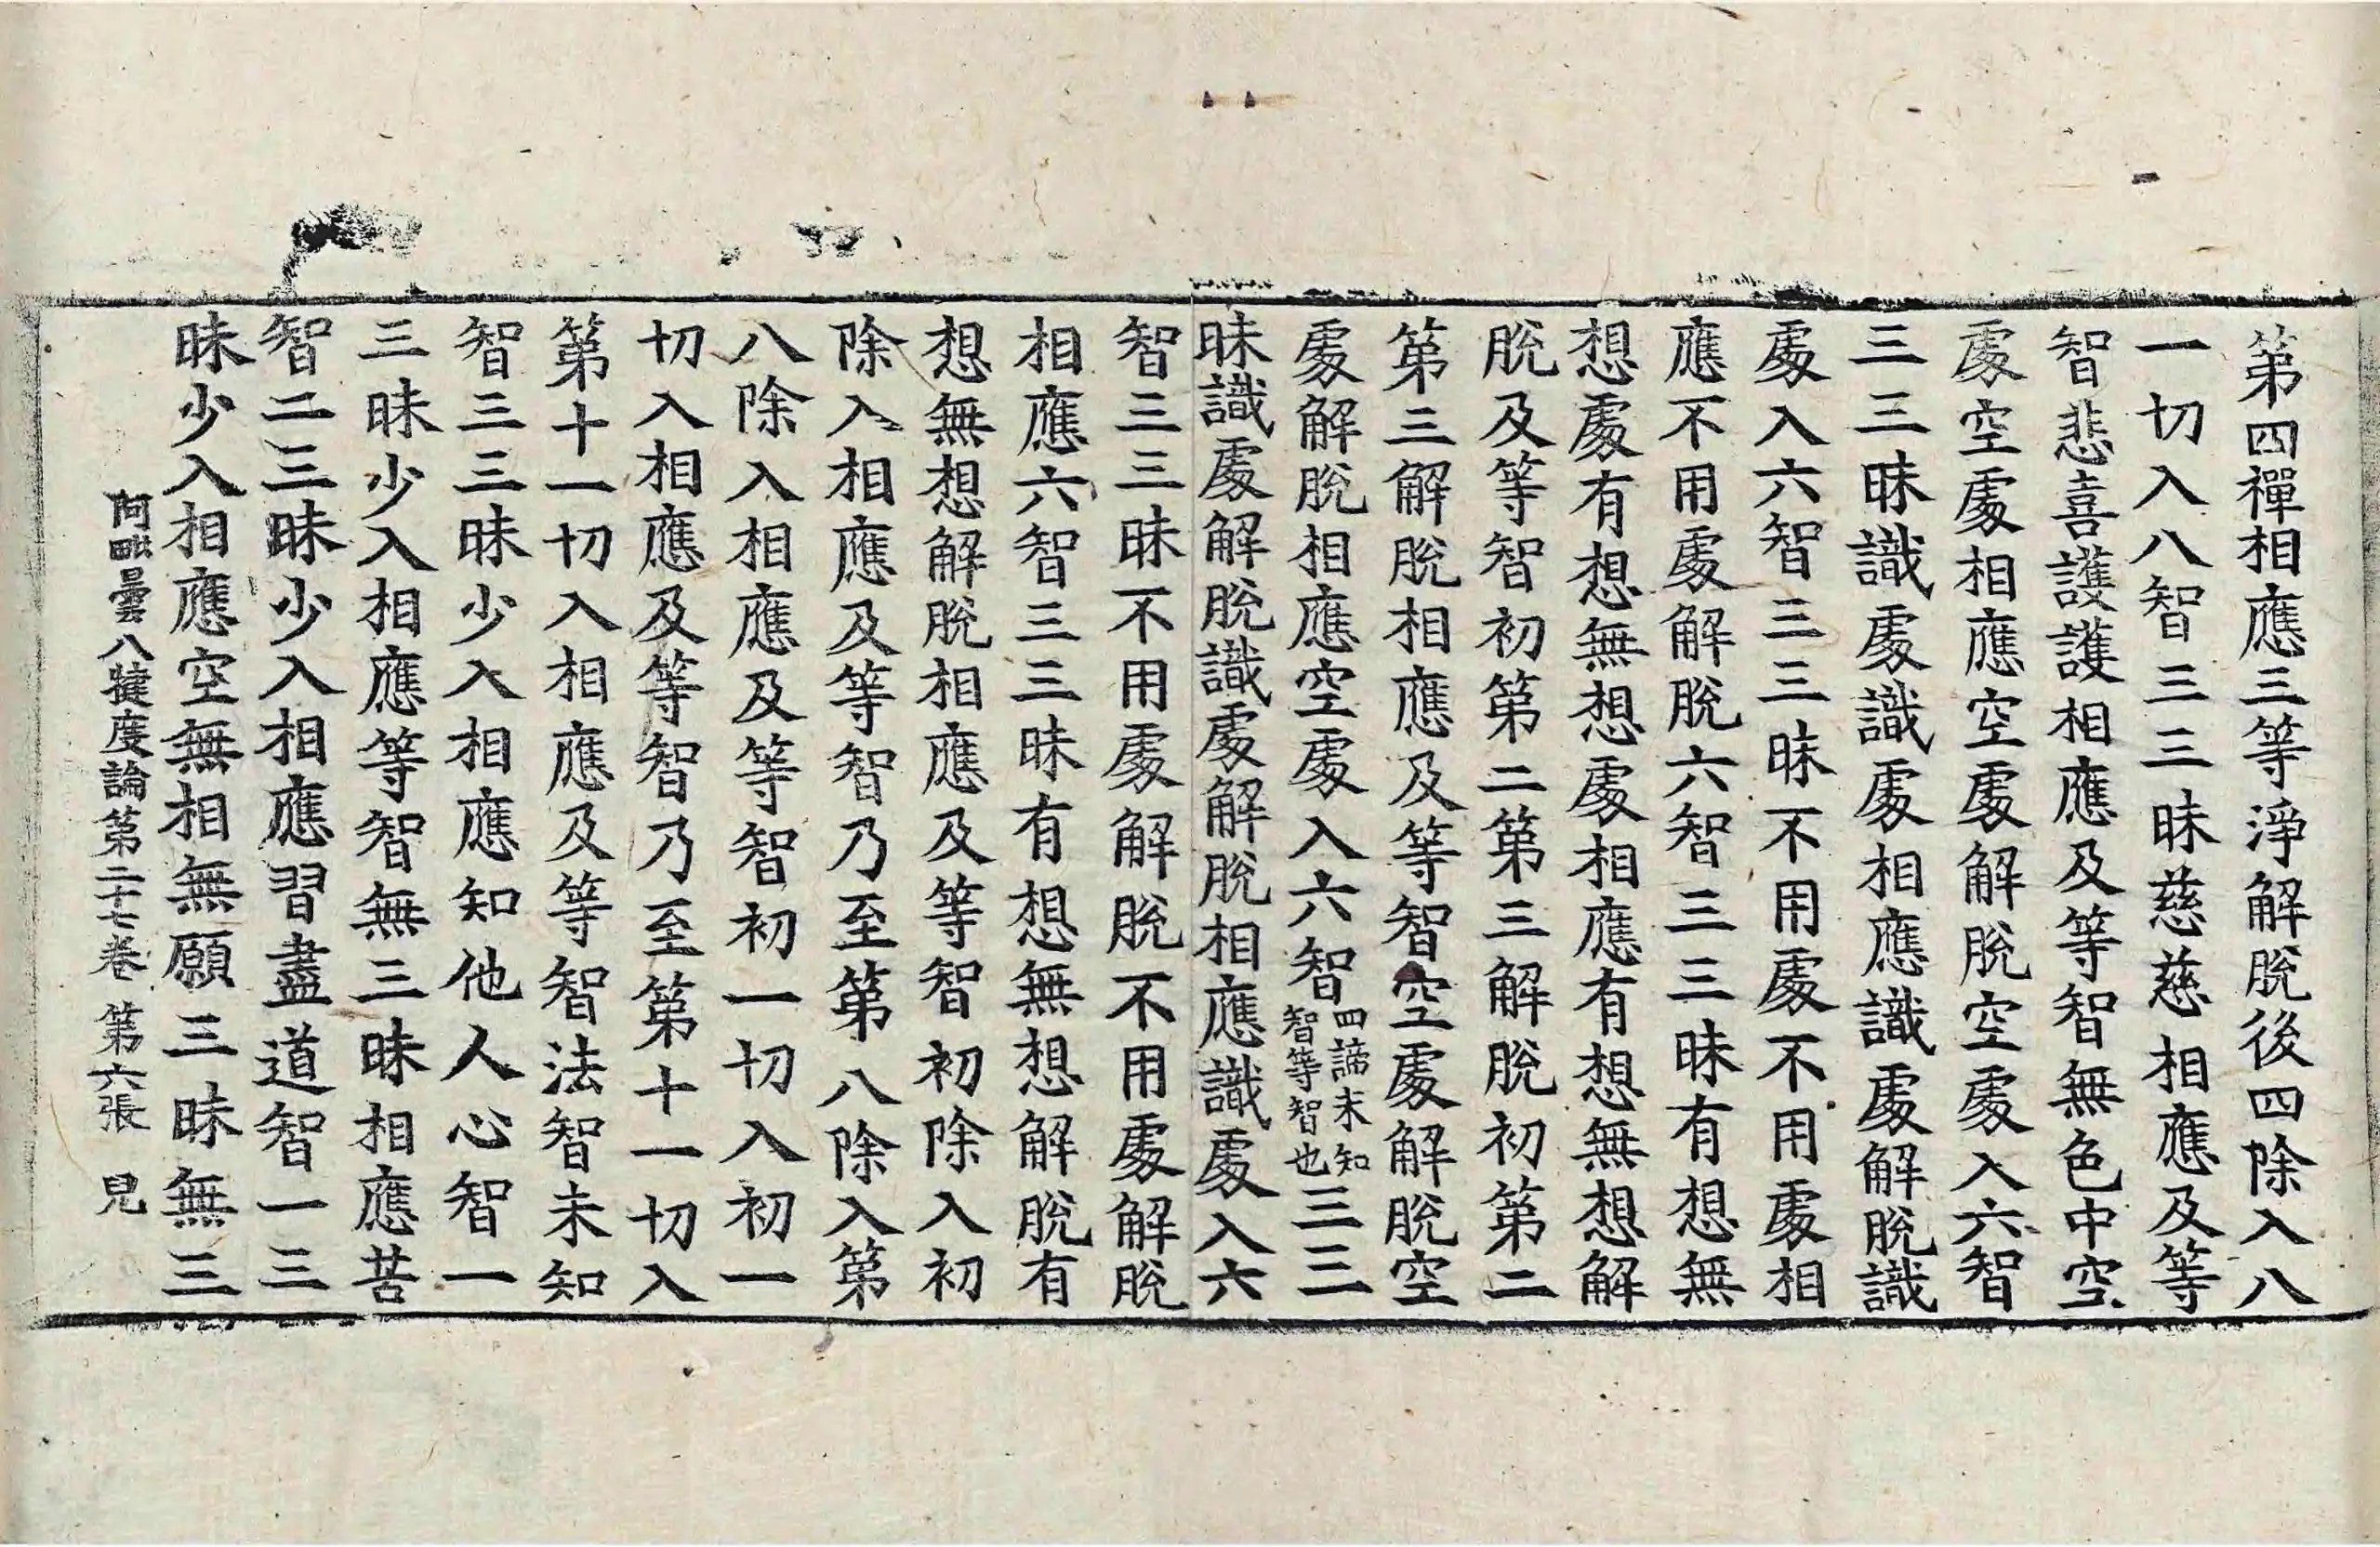 第四禪相應三等淨解脫後四除入八
一切入八智三三昧慈慈相應及等
智悲喜護護相應及等智無色中空
處空處相應空處解脫空處入六智
三三昧識處識處相應識處解脫識
處入六智三三昧不用處不用處相
應不用處解脫六智三三昧有想無
想處有想無想處相應有想無想解
脫及等智初第二第三解脫初第二
第三解脫相應及等智空處解脫空
處解脫相應空處入六智四諦未知智等智也三三
昧識處解脫識處解脫相應識處入六
智三三昧不用處解脫不用處解脫
相應六智三三昧有想無想解脫有
想無想解脫相應及等智初除入初
除入相應及等智乃至第八除入第
八除入相應及等智初一切入初一
切入相應及等智乃至第十一切入
第十一切入相應及等智法智未知
智三三昧少入相應知他人心智一
三昧少入相應等智無三昧相應苦
智二三昧少入相應習盡道智一三
昧少入相應空無相無願三昧無三
阿毗曇八犍度論第二十七卷 第六張 見